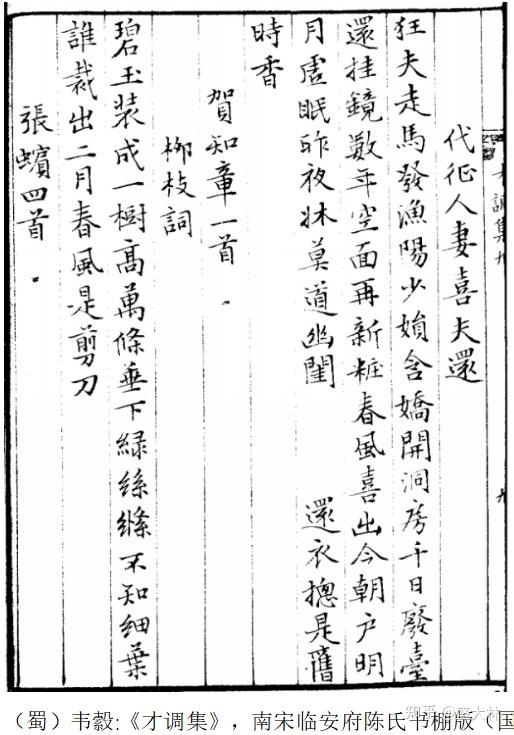 才調集九
九
代征人妻喜夫還
狂夫走馬發漁陽少婦含嬌開洞房千日廢臺
還挂鏡數年空面再新粧春風喜出今朝户明
月虛眠昨夜牀莫道幽閨 還衣摠是舊
時香
賀知章一首
柳枝詞
碧玉装成一樹髙萬條垂下緑絲縧不知細葉
誰裁出二月春風是剪刀
張蠙四首
知乎 @盛大林
（蜀）韦縠:《才调集》，南宋临安府陈氏书棚版（国